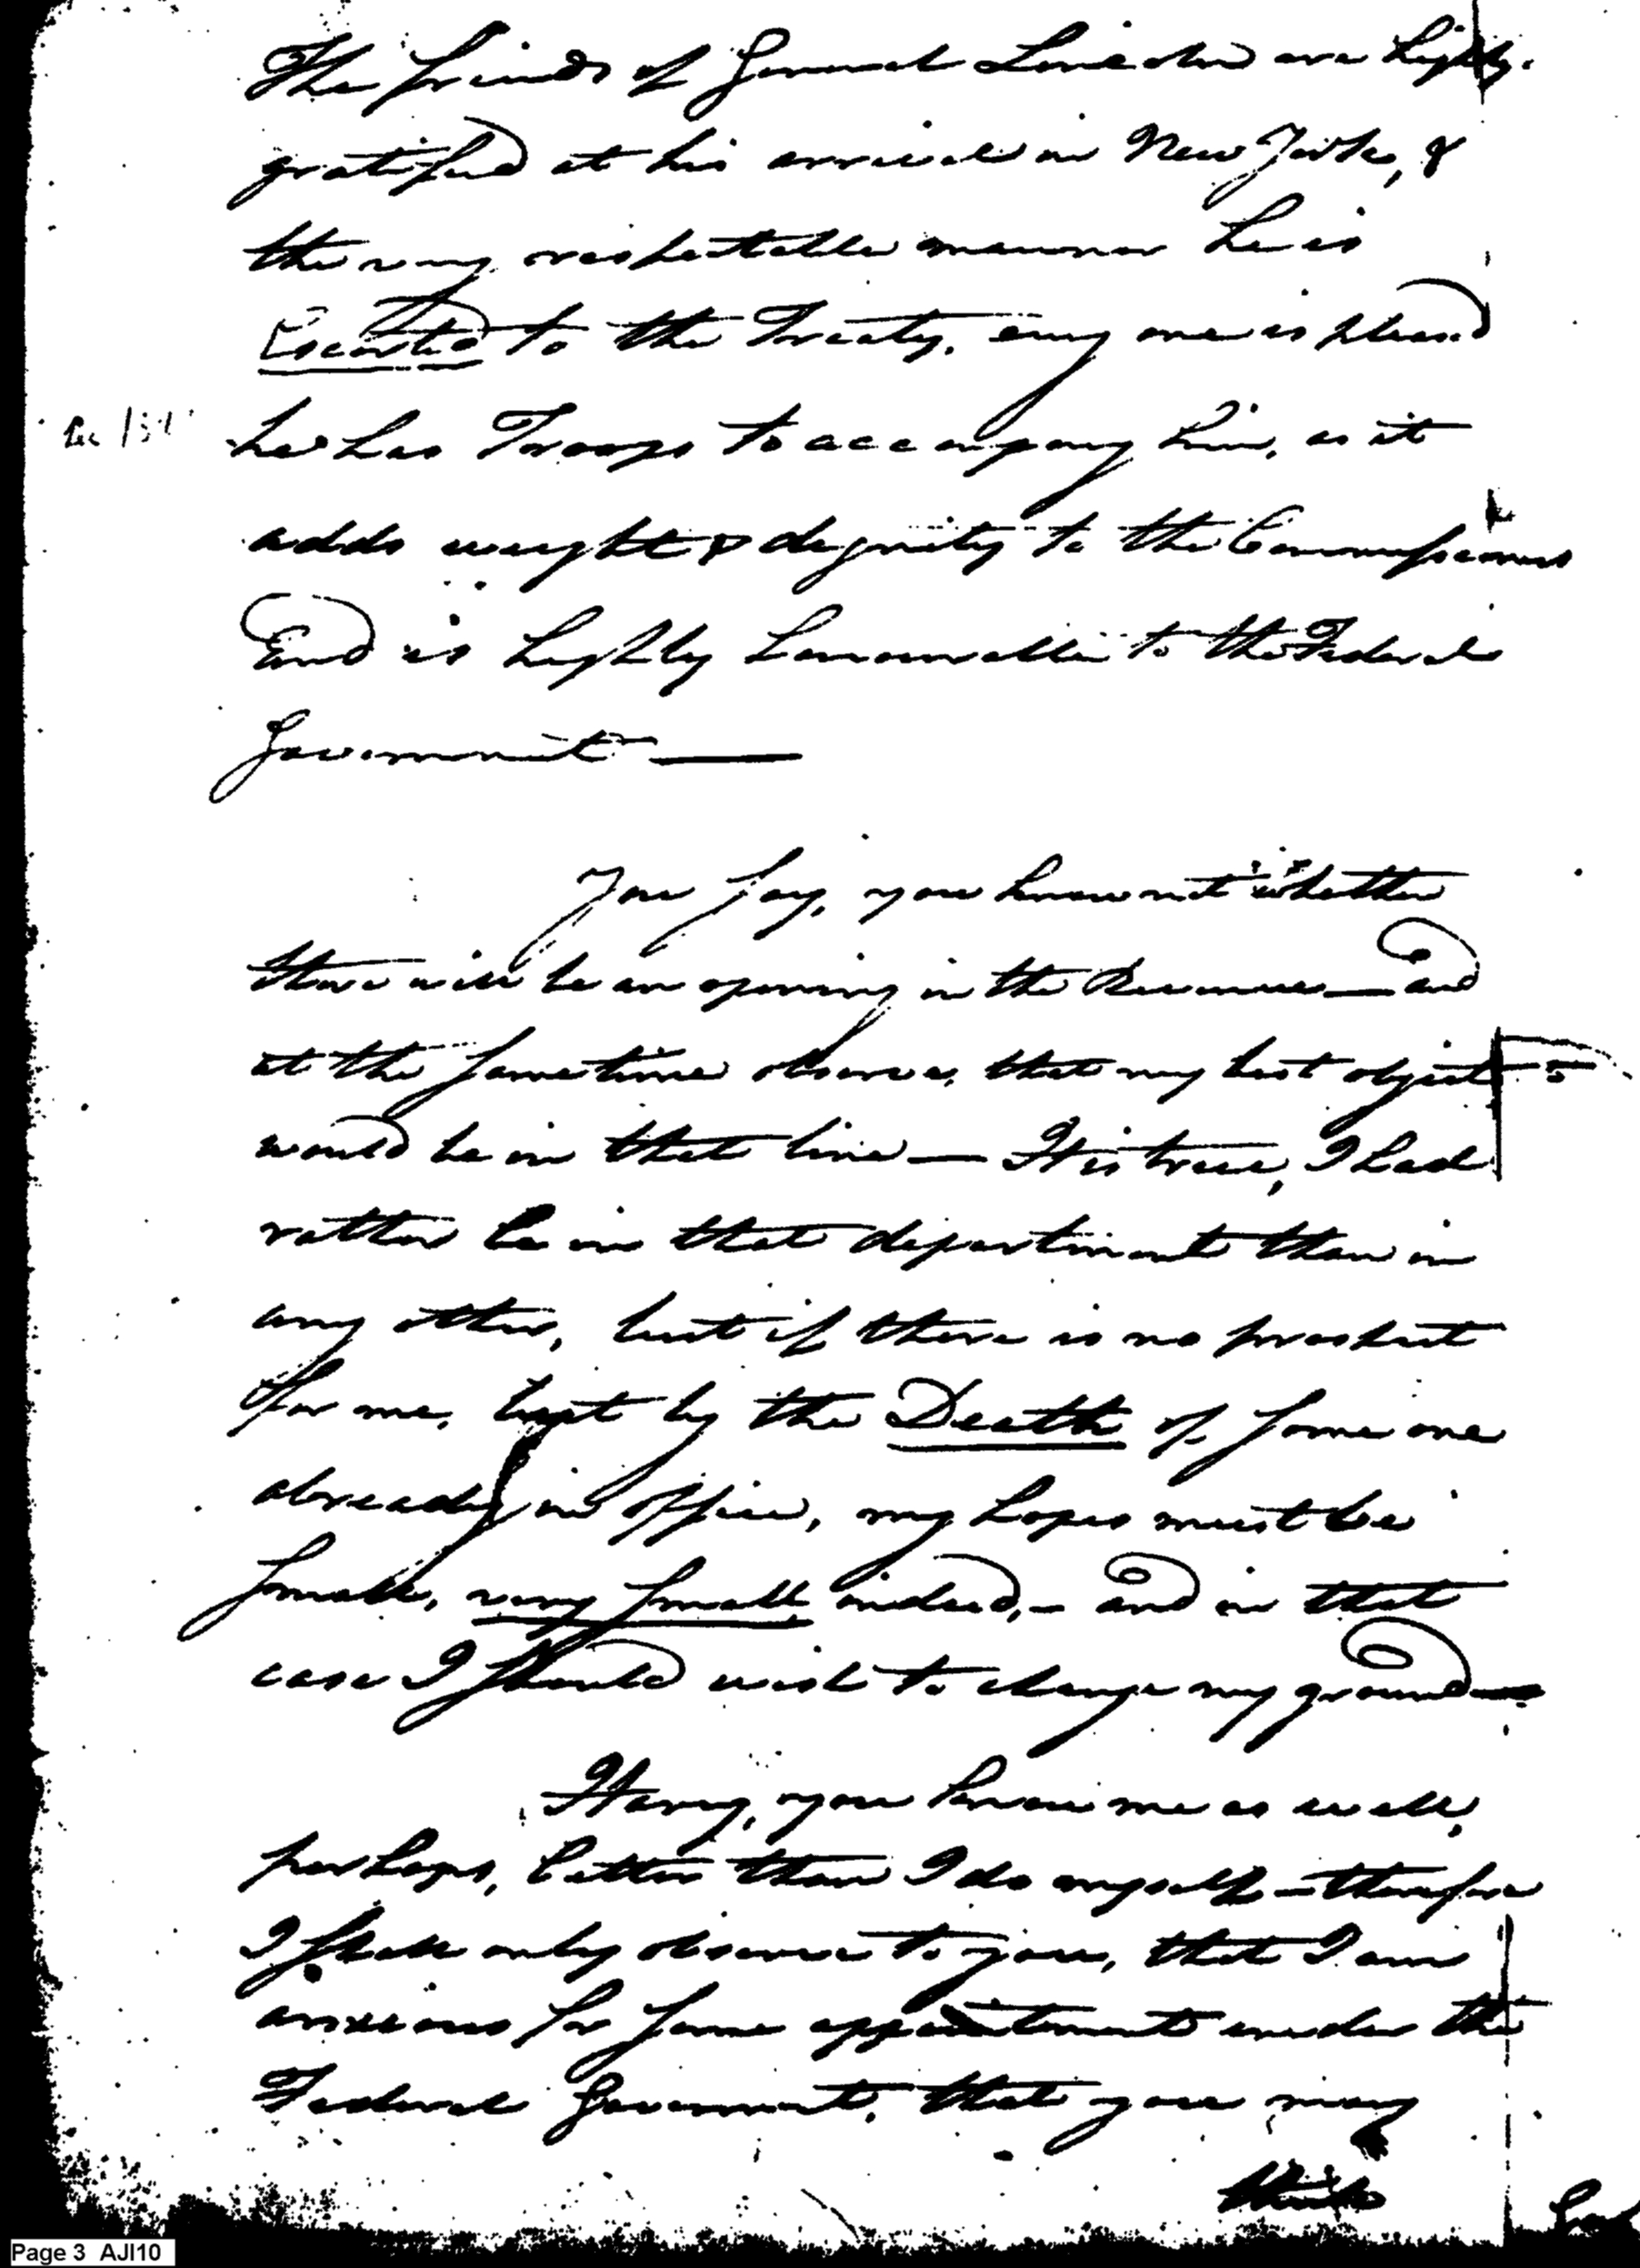 The friends of General Lincoln are highly
gratified at his arrival in New York, &
the very respectable manner he is
Escorted to the Treaty. every one is pleased
he has Troops to accompany him, as it
adds weight & dignity to the Commissioners
And is highly honourable to the Federal
Government —
You say, you know not whether
there will be an opening in the Revenue — and
at the same time observe, that my best object
would be in that line — It is true, I had
rather be in that department than in
any other, but if there is no prospect
for me, but by the Death of some one
already in office, my hopes must be
small, very small indeed, — and in that
case I should wish to change my ground —
Harry, you know me as well,
perhaps, better than I do myself — therefore
I shall only observe to you, that I am
anxious for some appointment under the
Federal Government. that you may
think
Page 3 AJI10